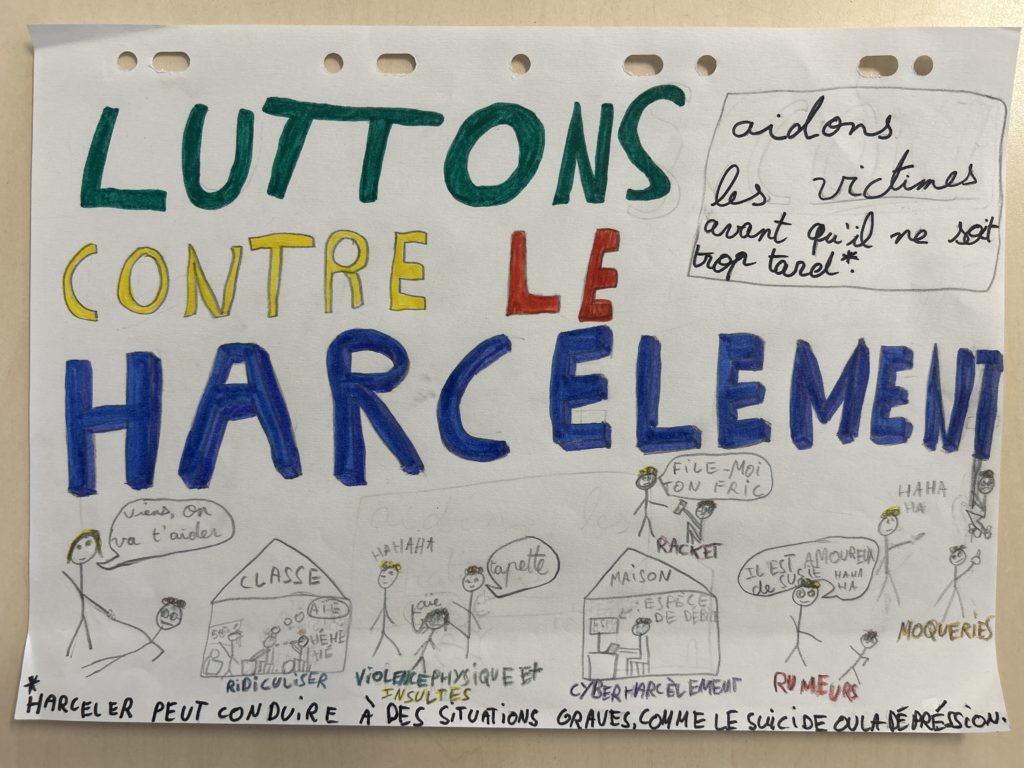 LUTTONS
CONTRE LE
HARCELEMENT
aidons
les victimes
avant qu'il ne soit
trop tard*.
viens, on
va t'aider
CLASSE
AÏE
HÉHÉ
HÉ
RIDICULISER
HAHAHA
tapette
aïe
VIOLENCE PHYSIQUE ET
INSULTES
FILE-MOI
TON FRIC
RACKET
MAISON
ESPÈCE
DE DÉBILE
CYBERHARCÈLEMENT
IL EST AMOUREUX
de SUSIE
HAHA
HA
RUMEURS
HAHA
HA
MOQUERIES
*
HARCELER PEUT CONDUIRE À DES SITUATIONS GRAVES, COMME LE SUICIDE OU LA DÉPRÉSSION.